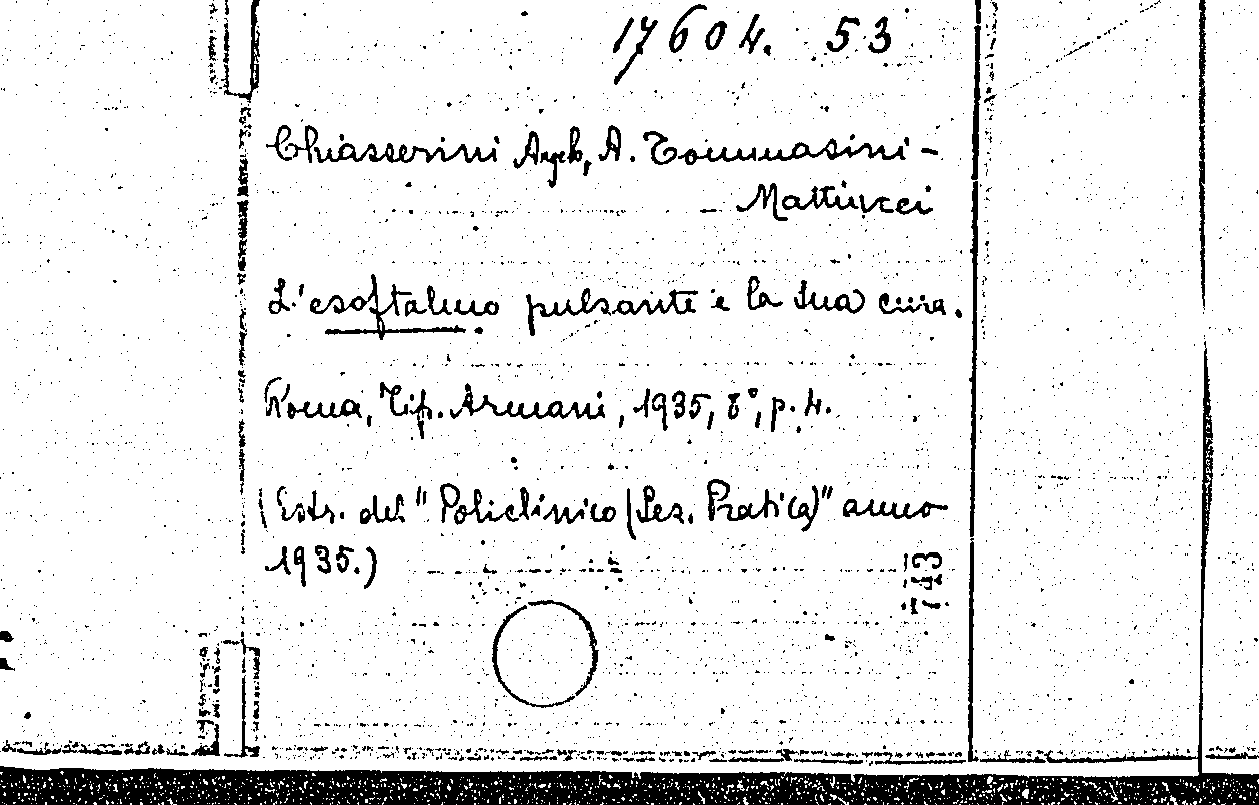 17604. 53
Chiasserini Angelo, A. Tommasini -
Mattiucci
L'esoftalmo pulsante e la sua cura.
Roma, Tip. Armani, 1935, 8°, p. 4.
(Estr. del "Policlinico (Sez. Pratica)" anno
1935.)
743